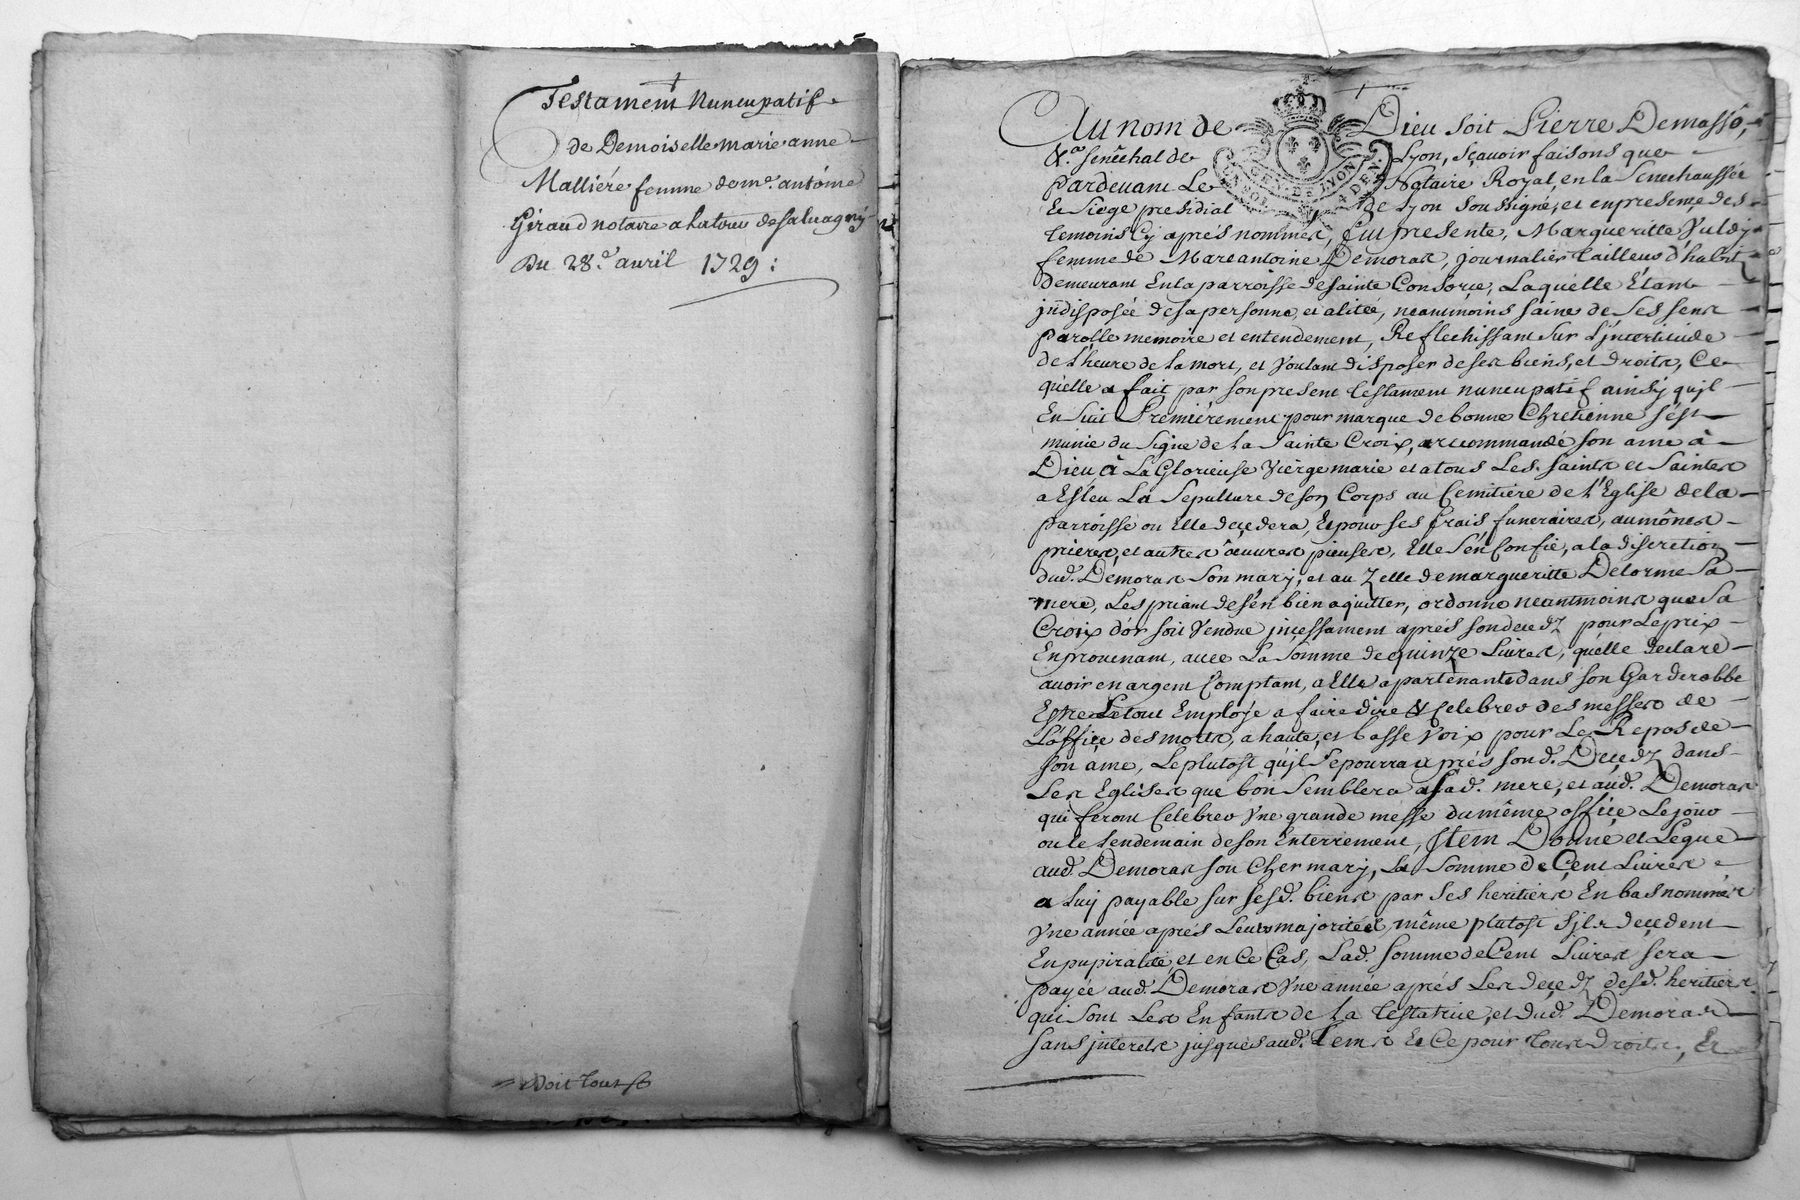 Testament Nuncupatif
de Demoiselle marie anne
Malliére femme de me. antoine
Giraud notaire a latour desaluagny
Du 28.e auril 1729 :
Doit tout
Au nom de Dieu soit Pierre Demassô,
senêchal de Lyon, sçavoir faisons que
pardeuant Le Notaire Royal, en la Senechaussée
& Siege presidial de Lyon soussigné, et en presence des
temoins Cy aprés nommés, fut presente, Margueritte
femme de Marc antoine Demoras, journalier tailleur d'habit
demeurant En la parroisse de sainte Consorce, Laquelle Étant
jndisposée desa personne, et alitée, neantmoins saine de Ses sens
parolle memoire et entendement, Reflechissant sur L'jncertitude
de l'heure de la mort, et voulant disposer de ses biens, et droits, Ce
qu'elle a fait par son present testament nuncupatif ainsi qu'jl
En suit Premiérement pour marque de bonne Chretienne s'est
munie du signe de la Sainte Croix, a recommandé son ame à
Dieu, à La Glorieuse Viérge marie et a tous Les saints et Saintes
a Esleu La Sepulture de son Corps au Cemitiére de l'Eglise de la
parroisse ou Elle decedera, Et pour ses frais funeraires, aumônes
prieres, et autres oeuvres pieuses, Elle s'en Confie, a la discretion
dud. Demoras son mary, et au Zelle de margueritte Delorme sa
mere, Les priant de s'en bien aquitter, ordonne neantmoins que sa
Croix d'or soit Vendue jncessament aprés son decedz pour Le prix
En prouenant, auec La somme de quinze Liures, qu'elle declare
auoir en argent Comptant, a Elle apartenante dans son Garderobbe
Estre Le tout Employé a faire dire & Celebrer des messes de
L'office des morts, a haute, et basse Voix pour Le Repos de
son âme, Le plutost qu'jl se pourra aprés sond. Decedz dans
Les Eglises que bon semblera a sad. mere, et aud. Demoras
qui feront Celebrer Vne grande messe du même office Le jour
ou le lendemain de son Enterrement, Jtem Donne et Legue
aud. Demoras son Cher mary, La somme de Cent Liures
a Luy payable sur sesd. biens par ses heritiers En bas nommés
Vne année aprés Leur majorité, même plutost s'jls decedent
En pupiralité, et en Ce Cas, Lad. somme de Cent Liures sera
payée aud. Demoras Vne année aprés Les decedz desd. heritiers
qui sont Les Enfants de la testatrice, et dud. Demoras
sans jnterets jusques aud. tems Et Ce pour tous Droits, Et